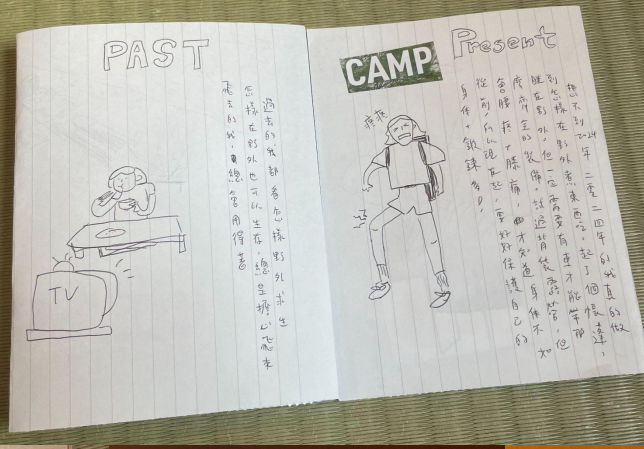 PAST
過去的我都看怎樣野外求生
怎樣在野外也可以生存,總是擔心飛來
飛去的我,總會用得著
TV
CAMP
Present
痠疼
想不到2024年 二零二四年的我真的做
到怎樣在野外煮東西吃,起了個帳
睡在野外。但一定需要有車才能帶那
麼齊全的裝備。試過背裝露營,但
會腰疼+膝痛,由才知道身體不如
從前,所以現在起,要好好保護自己的
身體+鍛鍊多D!